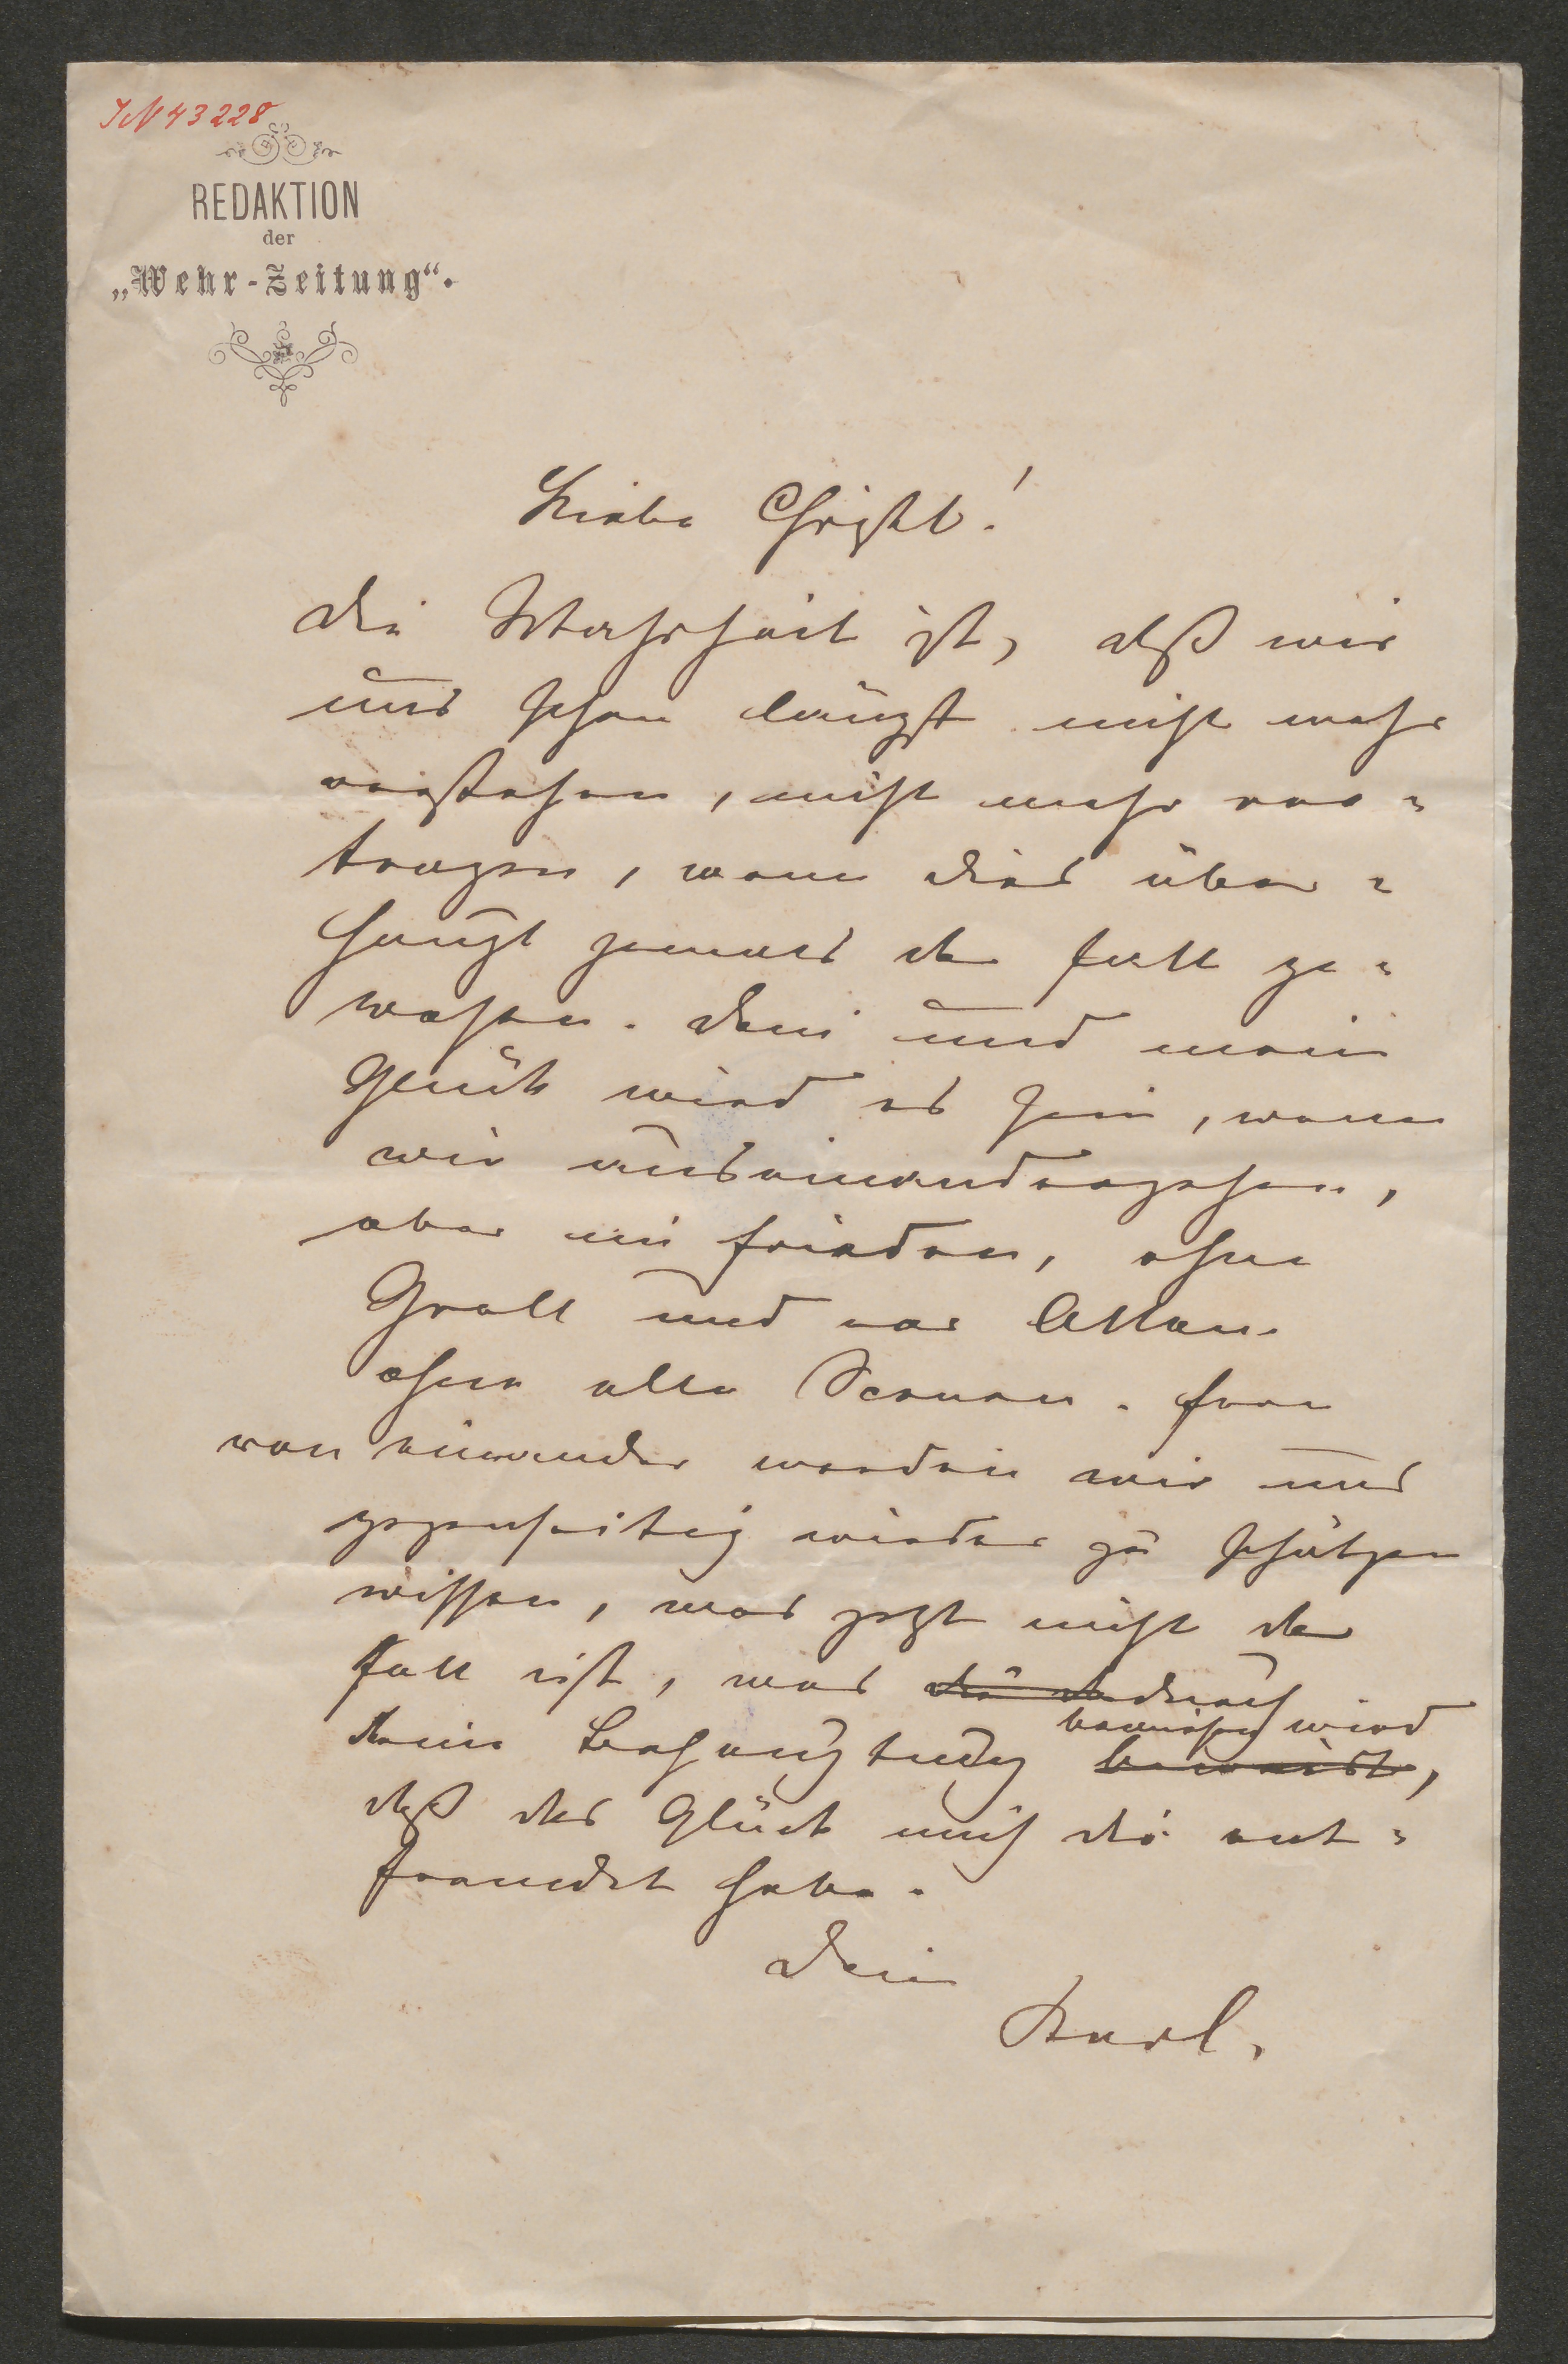 IN 43228
REDAKTION
der
„Wehr-Zeitung“.
Liebe Christl!
Die Wahrheit ist, daß wir
uns schon längst nicht mehr
verstehen, nicht mehr ver=
tragen, wenn dies über=
haupt jemals der Fall ge=
wesen. Dein und mein
Glück wird es sein, wenn
wir auseinandergehen,
aber in Frieden, ohne
Groll und vor Allem
ohne alle Scenen. Fern
von einander werden wir uns
gegenseitig wieder zu schätzen
wissen, was jetzt nicht der
Fall ist, was durch
deine Behauptung bewiesen wird,
daß das Glück mich dir ent=
fremdet habe.
Dein
Karl.